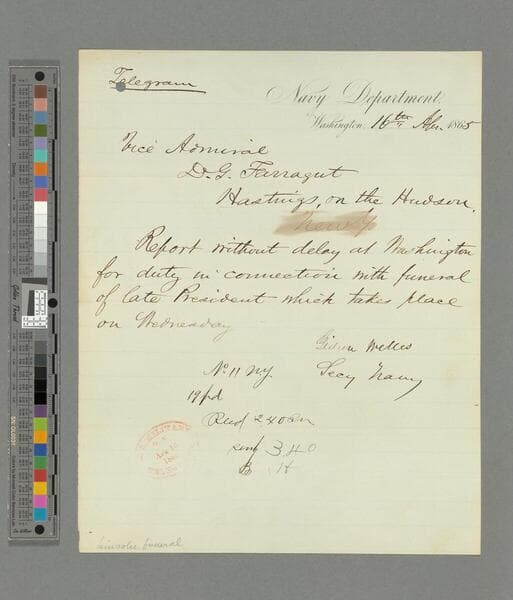 Telegram
Navy Department.
Washington, 16th Apr. 1865
Vice Admiral
D. G. Farragut
Hastings, on the Hudson,
Report without delay at Washington
for duty in connection with funeral
of late President which takes place
on Wednesday
Gideon Welles
Secy Navy
No. 11 NY.
19 pd
Recd 2 40 Pm
sent 3.40
Lincoln funeral